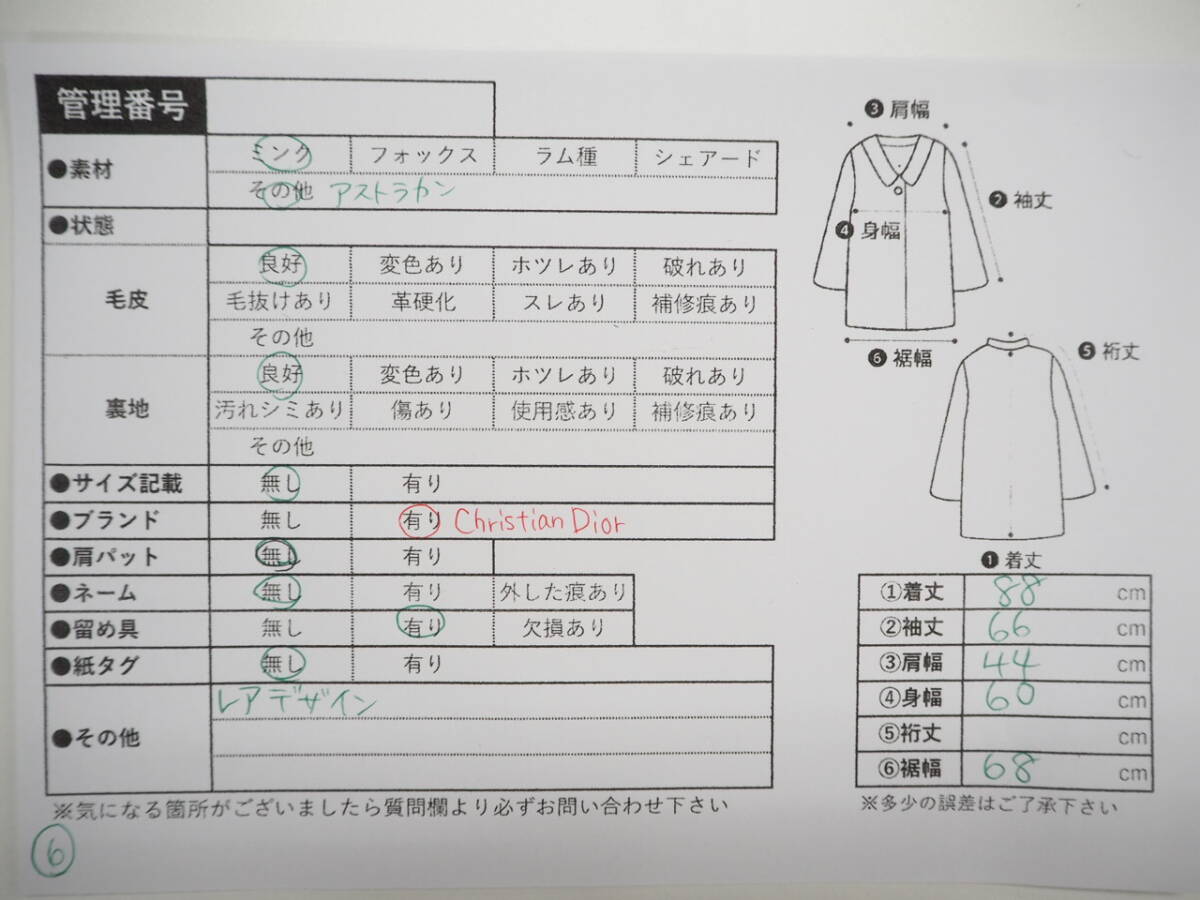 管理番号
●素材 ミンク フォックス ラム種 シェアード
その他 アストラカン
●状態
毛皮 良好 変色あり ホツレあり 破れあり
毛抜けあり 革硬化 スレあり 補修痕あり
その他
裏地 良好 変色あり ホツレあり 破れあり
汚れシミあり 傷あり 使用感あり 補修痕あり
その他
●サイズ記載 無し 有り
●ブランド 無し 有り Christian Dior
●肩パット 無し 有り
●ネーム 無し 有り 外した痕あり
●留め具 無し 有り 欠損あり
●紙タグ 無し 有り
●その他 レアデザイン
※気になる箇所がございましたら質問欄より必ずお問い合わせ下さい
6
❸肩幅
❷袖丈
❹身幅
❻裾幅
❺裄丈
❶着丈
①着丈 88 cm
②袖丈 66 cm
③肩幅 44 cm
④身幅 60 cm
⑤裄丈 cm
⑥裾幅 68 cm
※多少の誤差はご了承下さい